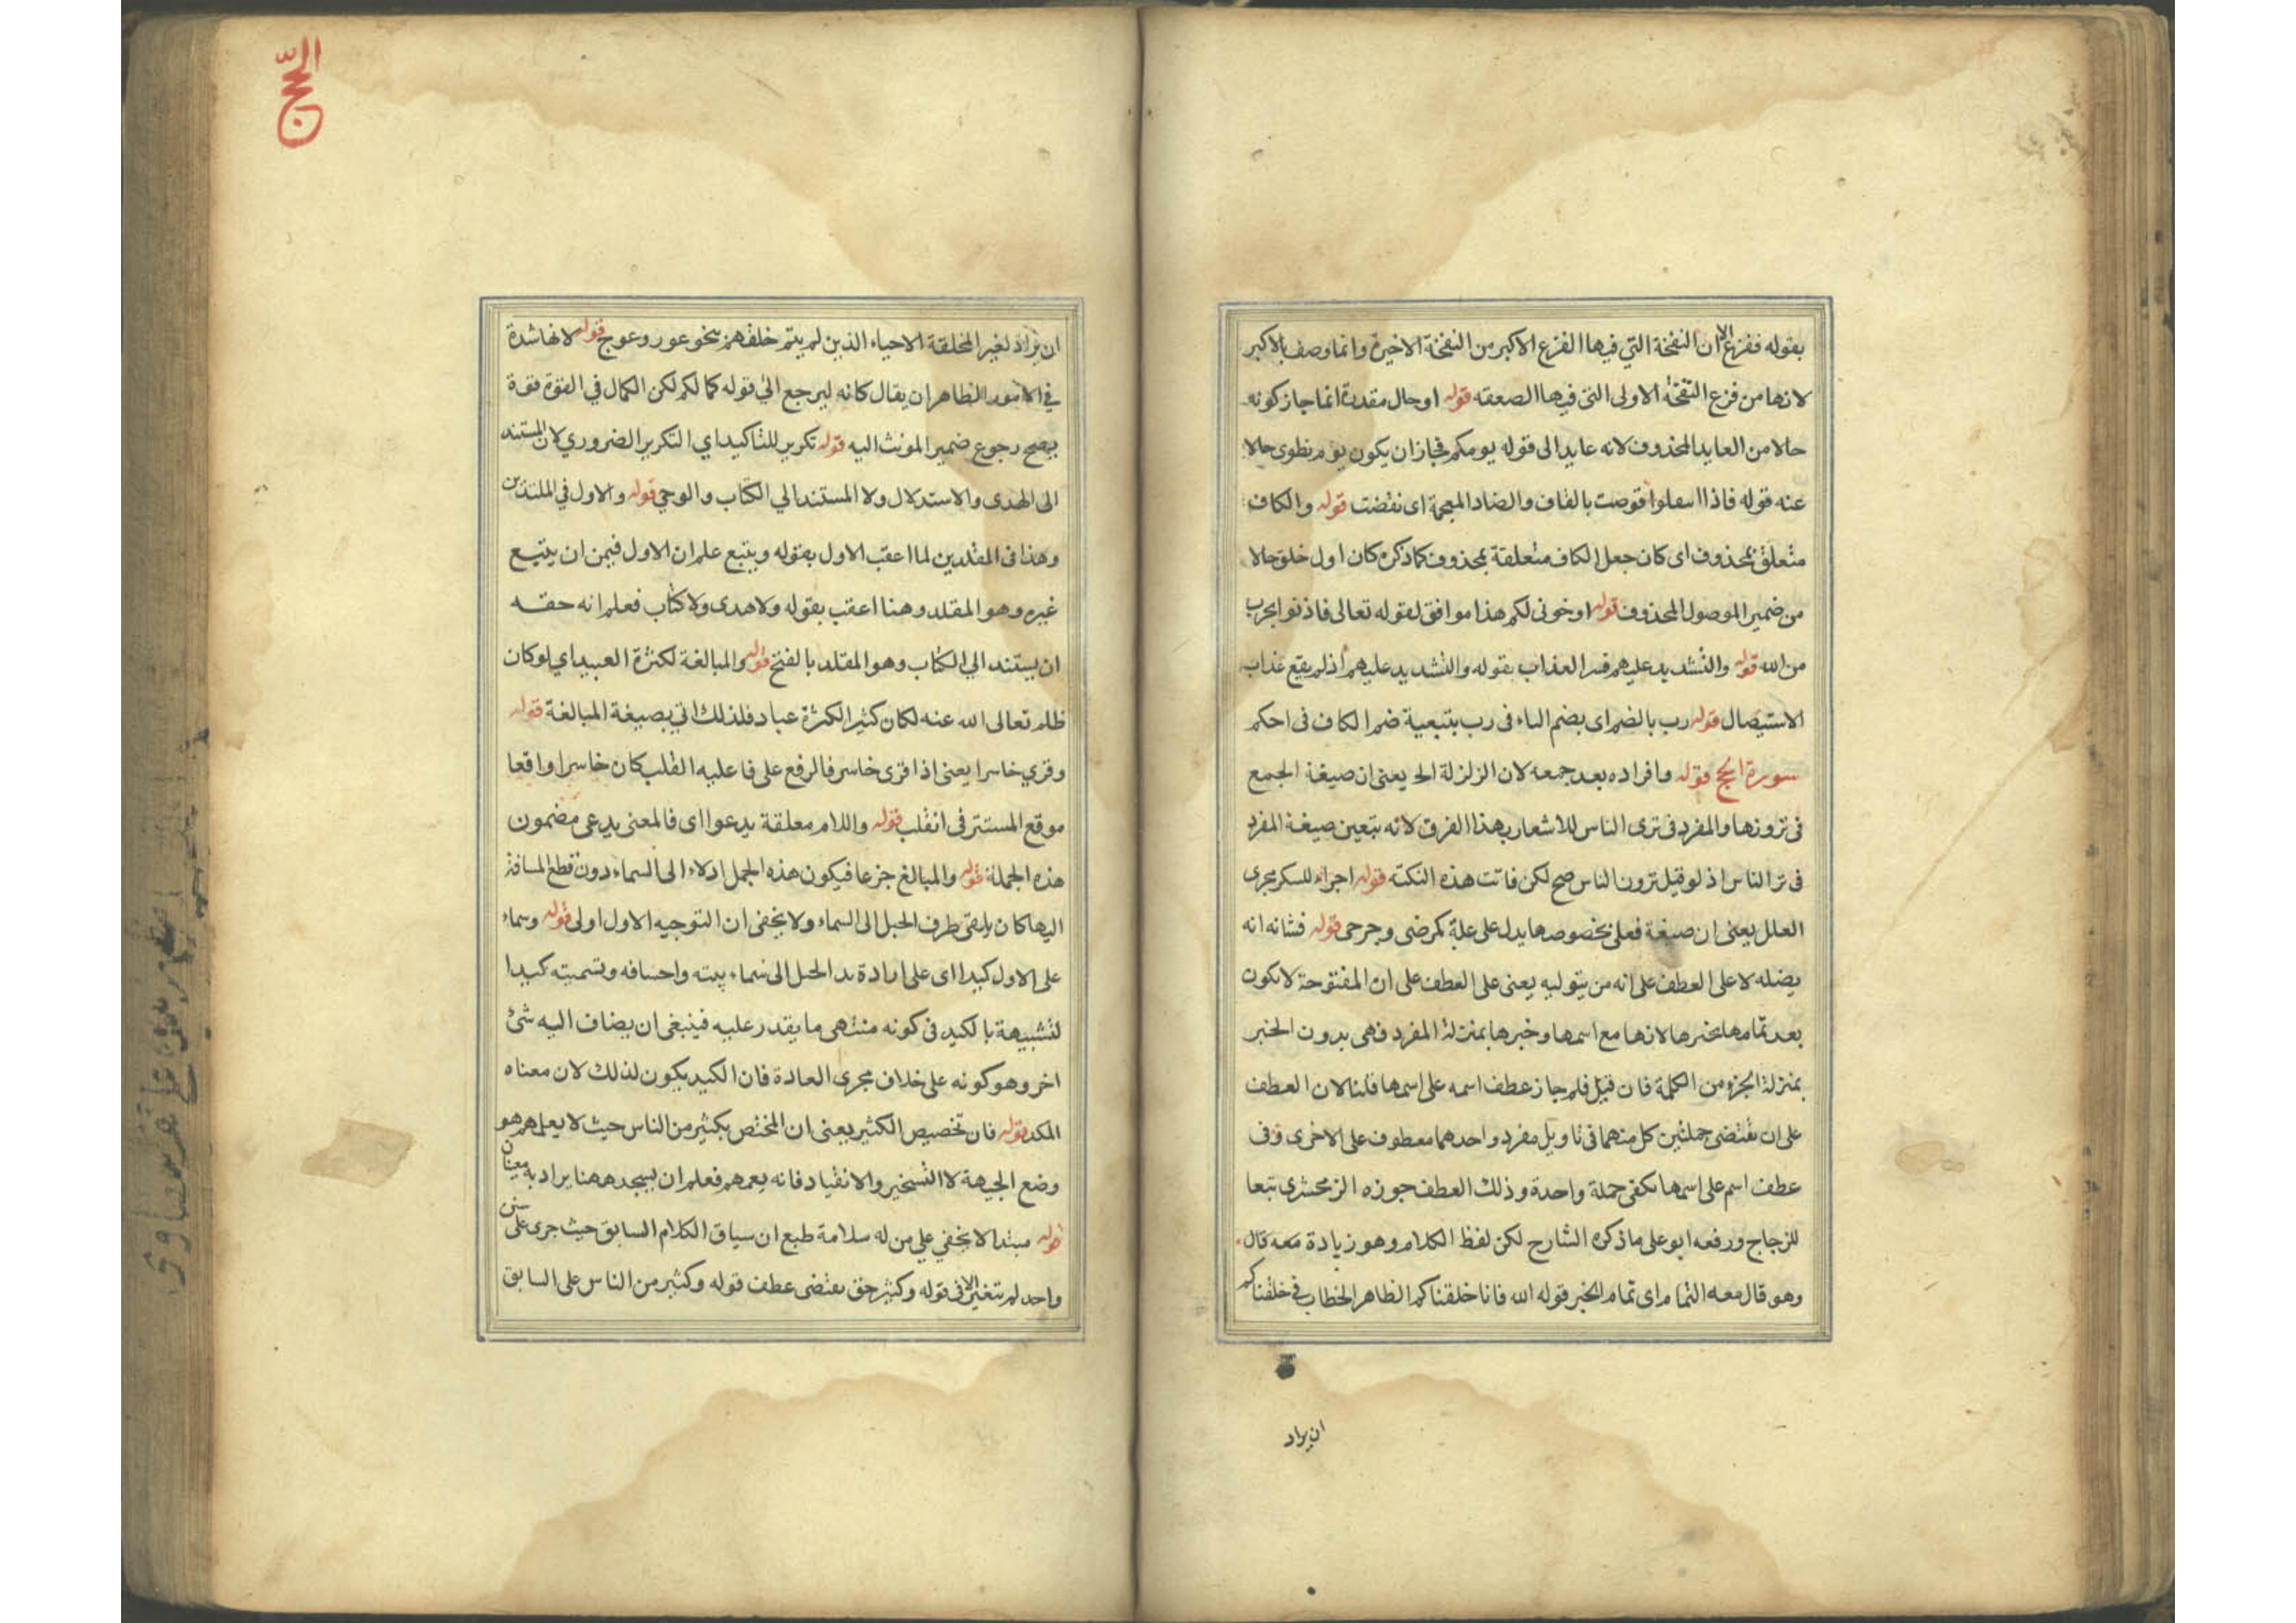 بقوله ففزع الا ان النفخة التي فيها الفزع الاكبر من النفخة الاخيرة وانما وصف بالاكبر
لانها من فزع النفخة الاولى التي فيها الصعقة قوله او حال مقدرة انما جاز كونه
حالا من العايد المحذوف لانه عايد الى قوله يومكم فجاز ان يكون يوم نطوى حالا
عنه قوله فاذا قوضت بالقاف والضاد المعجمة اى نقضت قوله والكاف
متعلق بمحذوف اى كان جعل الكاف متعلقة بمحذوف كما ذكره كان اول خلق حالا
من ضمير الموصول المحذوف قوله او خونى لكم هذا موافق لقوله تعالى فاذنوا بحرب
من الله قوله والتشديد عليهم فسر العذاب بقوله والتشديد عليهم اذ لم يقع عذاب
الاستيصال قوله رب بالضم اى بضم الباء فى رب بتبعية ضم الكاف فى احكم
سورة الحج قوله وافراده بعد جمعه لان الزلزلة الخ يعنى ان صيغة الجمع
فى ترونها والمفرد فى ترى الناس للاشعار بهذا الفرق لانه بتعين صيغة المفرد
فى ترا الناس اذ لو قيل ترون الناس صح لكن فاتت هذه النكتة قوله اجراء للسكر مجرى
العلل يعنى ان صيغة فعلى بخصوصها يدل على علة كمرضى وجرحى قوله فشانه انه
يضله لا على العطف على انه من يتوليه يعنى على العطف على ان المفتوحة لا يكون
بعد تمامها بخبرها لانها مع اسمها وخبرها بمنزلة المفرد فهى بدون الخبر
بمنزلة الجزء من الكلمة فان قيل فلم جاز عطف اسمه على اسمها قلنا لان العطف
على ان يقتضى جملتين كل منهما فى تاويل مفرد واحدهما معطوف على الاخرى وفى
عطف اسم على اسمها يكفى جملة واحدة وذلك العطف جوزه الزمخشرى تبعا
للزجاج ورفعه ابو على ما ذكره الشارح لكن لفظ الكلام وهو زيادة معه قال
وهو قال معه التمام اى تمام الخبر قوله الله فانا خلقناكم الظاهر الخطاب فى خلقناكم
ان يراد
الحج
ان يراد لغير المخلقة الاحياء الذين لم يتم خلقهم بنحو عور وعوج قوله لانها شدة
فى الامور الظاهر ان يقال كانه ليرجع الي قوله كمالكم لكن الكمال في القوة قوة
يصح رجوع ضمير المونث اليه قوله تكرير للتاكيد اي التكرير الضروري لان المستند
الى الهدى والاستدلال ولا المستند الي الكتاب والوحي قوله والاول في المقلدين
وهذا فى المقلدين لما اعقب الاول بقوله ويتبع علم ان الاول فيمن ان يتبع
غيره وهو المقلد وهنا اعقب بقوله ولا هدى ولا كتاب فعلم انه حقه
ان يستند الي الكتاب وهو المقلد بالفتح قوله والمبالغة لكثرة العبيد اي لو كان
ظلم تعالى الله عنه لكان كثيرا لكثرة عباد فلذلك اتي بصيغة المبالغة قوله
وقري خاسرا يعنى اذا قرى خاسر فالرفع على فاعليه القلب كان خاسرا واقعا
موقع المستتر فى انقلب قوله واللام معلقة يدعوا اى فالمعنى يدعى مضمون
هذه الجملة قوله والمبالغ جزعا فيكون هذه الجمل ادلاء الى السماء دون قطع المسافة
اليها كان يلقى طرف الحبل الى السماء ولا يخفى ان التوجيه الاول اولى قوله وسماء
على الاول كيدا اى على ارادة مد الحبل الى سماء بيته وتسميته كيدا
لتشبيهة بالكيد فى كونه منتهى ما يقدر عليه فينبغى ان يضاف اليه شئ
اخر وهو كونه على خلاف مجرى العادة فان الكيد يكون لذلك لان معناه
المكر قوله فان تخصيص الكثير يعنى ان المختص بكثير من الناس حيث لا يعلمهم هو
وضع الجبهة لا التسخير والانقياد فانه يعمهم فعلم ان يسجد ههنا يراد به معنيان
قوله مبتدا لا يخفي علي من له سلامة طبع ان سياق الكلام السابق حيث جرى على سنن
واحد لم يتغير الا فى قوله وكثير حق يقتضى عطف قوله وكثير من الناس على السابق